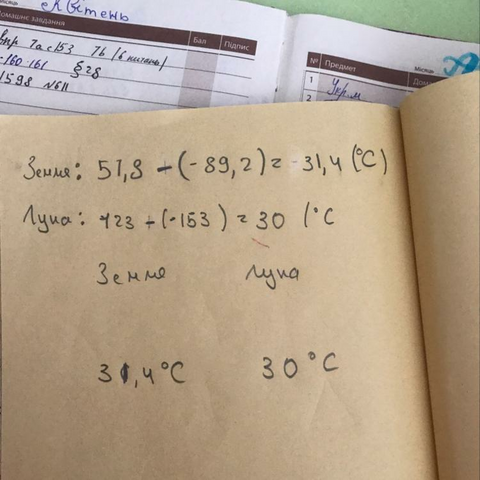 квітень
Домашнє завдання
Бал
Підпис
впр 7а с153 7b (6 питань)
160 161 § 28
1598 №611
Місяць
№
Предмет
Дом
1
Укр.м
2
Земля: 57,8 + (-89,2) = -31,4 (°C)
Луна: 123 + (-153) = 30 (°C
Земля Луна
31,4°C 30°C